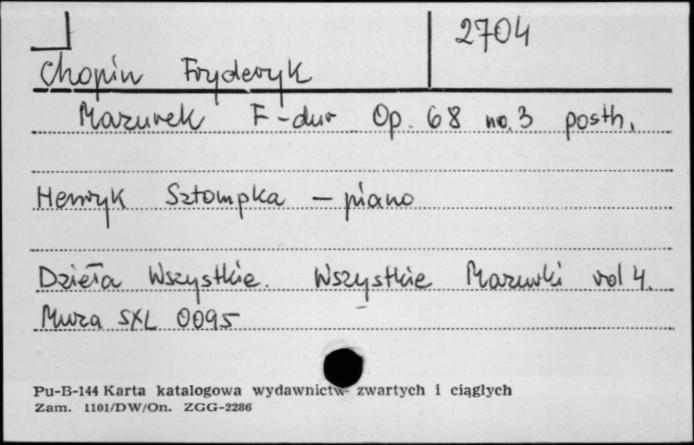 2704
Chopin Fryderyk
Mazurek F-dur Op. 68 no. 3 posth.
Henryk Sztompka - piano
Dzieła Wszystkie. Wszystkie Mazurki vol 4.
Muza SXL 0095
Pu-B-144 Karta katalogowa wydawnictw zwartych i ciągłych
Zam. 1101/DW/On. ZGG-2286